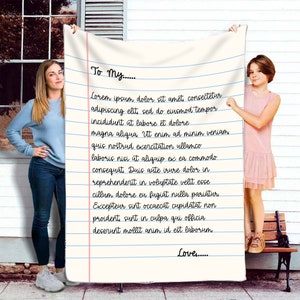 To My......
Lorem ipsum dolor sit amet, consectetur
adipiscing elit, sed do eiusmod tempor
incididunt ut labore et dolore
magna aliqua. Ut enim ad minim veniam,
quis nostrud exercitation ullamco
laboris nisi ut aliquip ex ea commodo
consequat. Duis aute irure dolor in
reprehenderit in voluptate velit esse
cillum dolore eu fugiat nulla pariatur.
Excepteur sint occaecat cupidatat non
proident, sunt in culpa qui officia
deserunt mollit anim id est laborum.
Love,.....